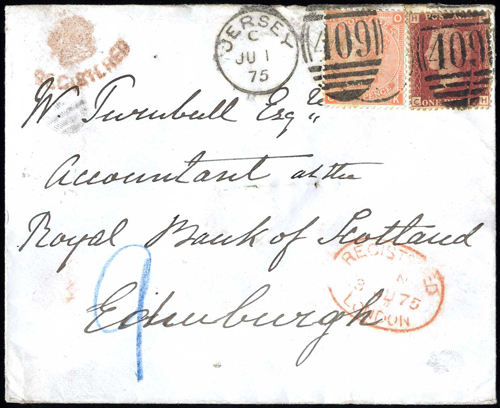 REGISTERED
JERSEY
C
JU 1
75
409
409
O
K
H
ONE
C
H
W. Turnbull Esqre
Accountant at the
Royal Bank of Scotland
Edinburgh
9
REGISTERED
JU 75
LONDON